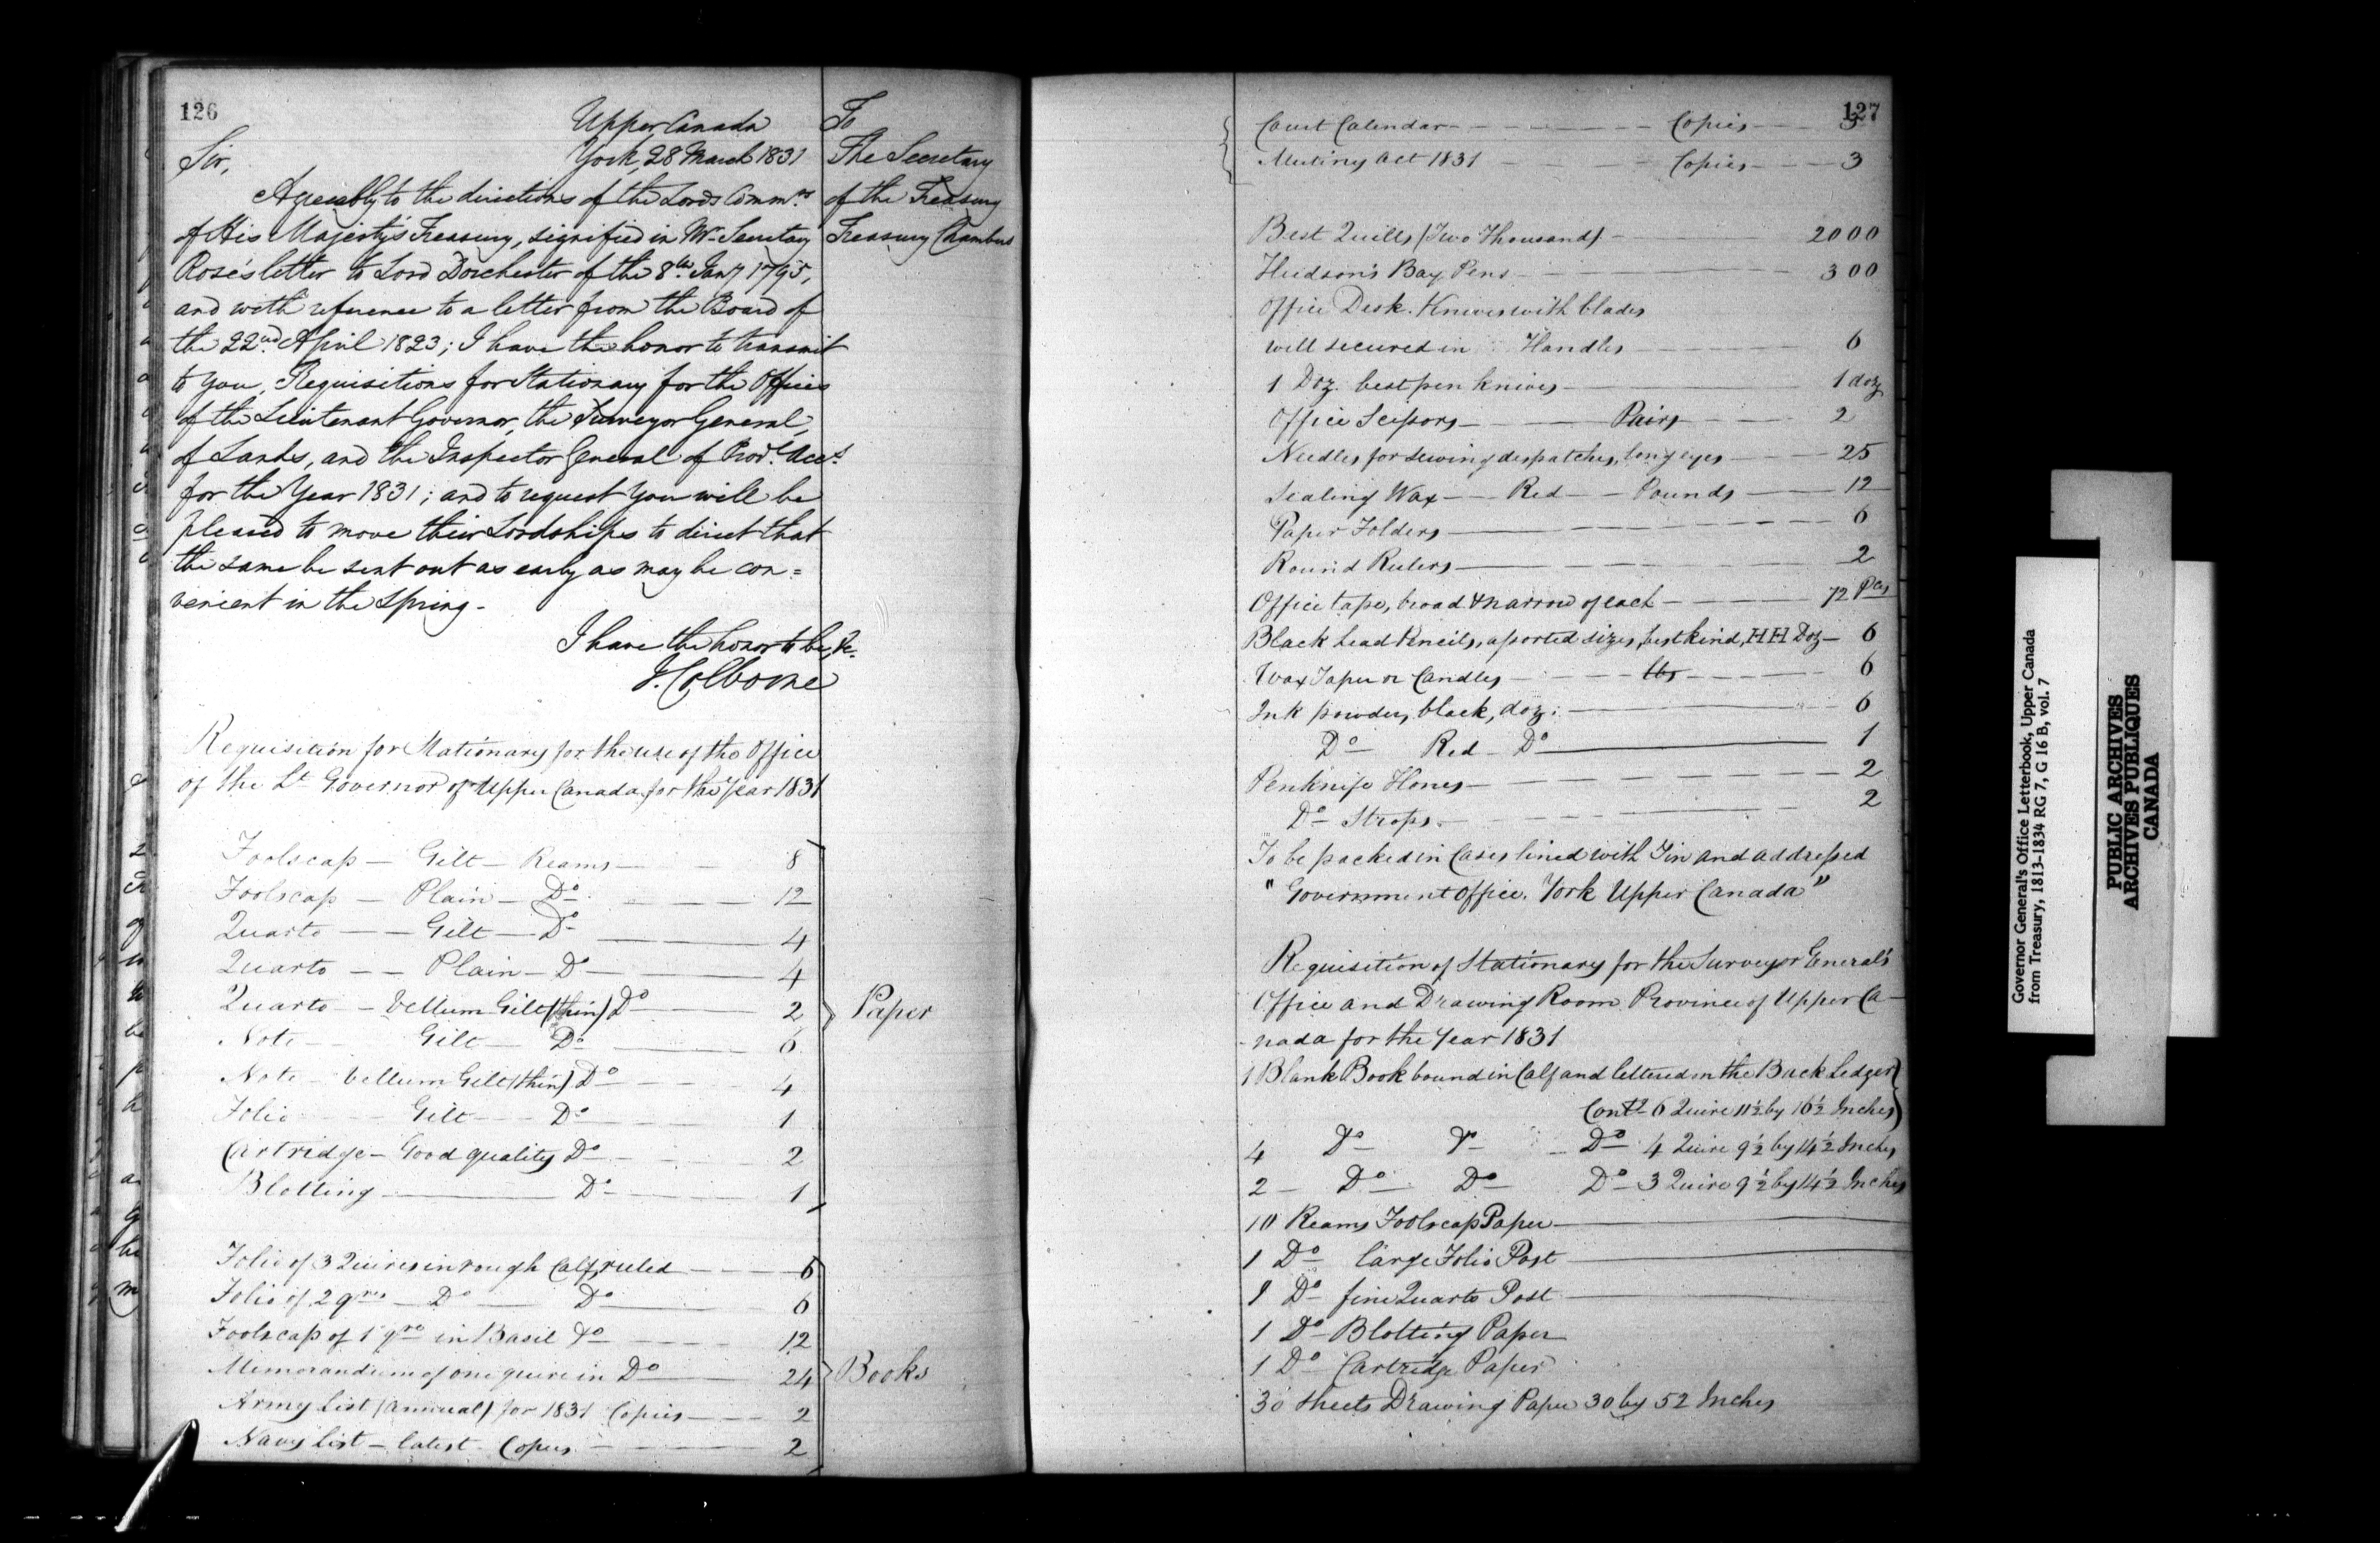 126
Upper Canada
York, 28 March 1831
Sir,
Agreeably to the directions of the Lords Commrs
of His Majesty's Treasury, signified in Mr Secretary
Rose's letter to Lord Dorchester of the 8th Jany 1795,
and with reference to a letter from the Board of
the 22nd April 1823; I have the honor to transmit
to you, Requisitions for Stationary for the Offices
of the Lieutenant Governor, the Surveyor General
of Lands, and the Inspector General of Prov.l Acc.ts
for the Year 1831; and to request you will be
pleased to move their Lordships to direct that
the same be sent out as early as may be con=
venient in the spring.
I have the honor to be, &c.
J. Colborne
To
The Secretary
of the Treasury
Treasury Chambers
Requisition for Stationary for the use of the Office
of the Lt Governor of Upper Canada for the Year 1831
Foolscap — Gilt — Reams — 8
Foolscap — Plain — Do — 12
Quarto — Gilt — Do — 4
Quarto — Plain — Do — 4
Quarto — Vellum Gilt (thin) Do — 2
Note — Gilt — Do — 6
Note — Vellum Gilt (thin) Do — 4
Folio — Gilt — Do — 1
Cartridge — Good quality Do — 2
Blotting — Do — 1
Paper
Folio of 3 Quires in rough Calf, ruled — 6
Folio of 2 qres — Do — Do — 6
Foolscap of 1 qre in Basil Do — 12
Memorandum of one quire in Do — 24
Army List (Annual) for 1831 Copies — 2
Navy List — latest — Copies — 2
Books
127
Court Calendar — Copies — 3
Mutiny Act 1831 — Copies — 3
Best Quills (Two Thousand) — 2000
Hudson's Bay Pens — 300
Office Desk Knives with blades
well secured in Handles — 6
1 Doz. best pen knives — 1 doz
Office Scissors — Pairs — 2
Needles for sewing despatches, long eyes — 25
Sealing Wax — Red — Pounds — 12
Paper Folders — 6
Round Rulers — 2
Office tape, broad & narrow of each — 72 Pces
Black Lead Pencils, assorted sizes, best kind, HH Doz — 6
Wax Taper or Candles — lbs — 6
Ink powder, black, doz: — 6
Do — Red — Do — 1
Penknife Hones — 2
Do — Strops — 2
To be packed in Cases lined with Tin and addressed
"Government Office. York Upper Canada"
Requisition of Stationary for the Surveyor General's
Office and Drawing Room Province of Upper Ca-
-nada for the Year 1831
1 Blank Book bound in Calf and lettered on the Back Ledger
Contg 6 Quire 11½ by 16½ Inches
4 Do Do Do 4 Quire 9½ by 14½ Inches
2 — Do Do Do 3 Quire 9½ by 14½ Inches
10 Reams Foolscap Paper —
1 Do large Folio Post —
1 Do fine Quarto Post —
1 Do Blotting Paper
1 Do Cartridge Paper
30 Sheets Drawing Paper 30 by 52 Inches
Governor General's Office Letterbook, Upper Canada
from Treasury, 1813-1834 RG 7, G 16 B, vol. 7
PUBLIC ARCHIVES
ARCHIVES PUBLIQUES
CANADA